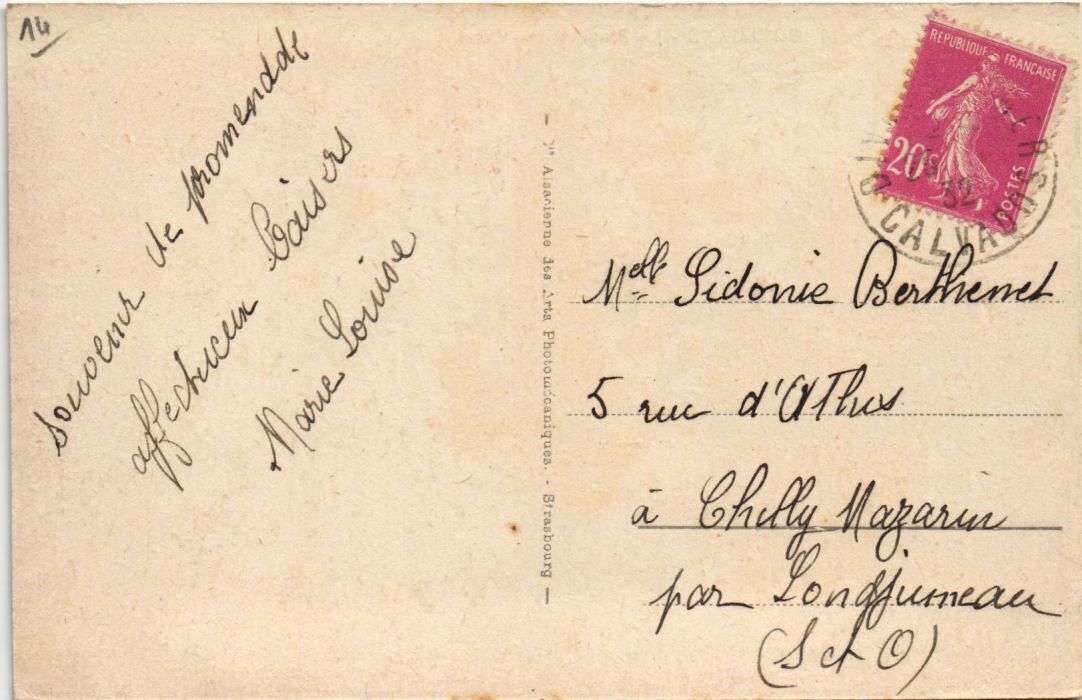 14
Souvenir de promendde
affectueux baisers
Marie Louise
Alsacienne des Arts Photomécaniques. - Strasbourg
RÉPUBLIQUE FRANÇAISE
20c
POSTES
32
CALVADOS
Melle Sidonie Berthenet
5 rue d'Athis
à Chilly Mazarin
par Londjumeau
(S et O)